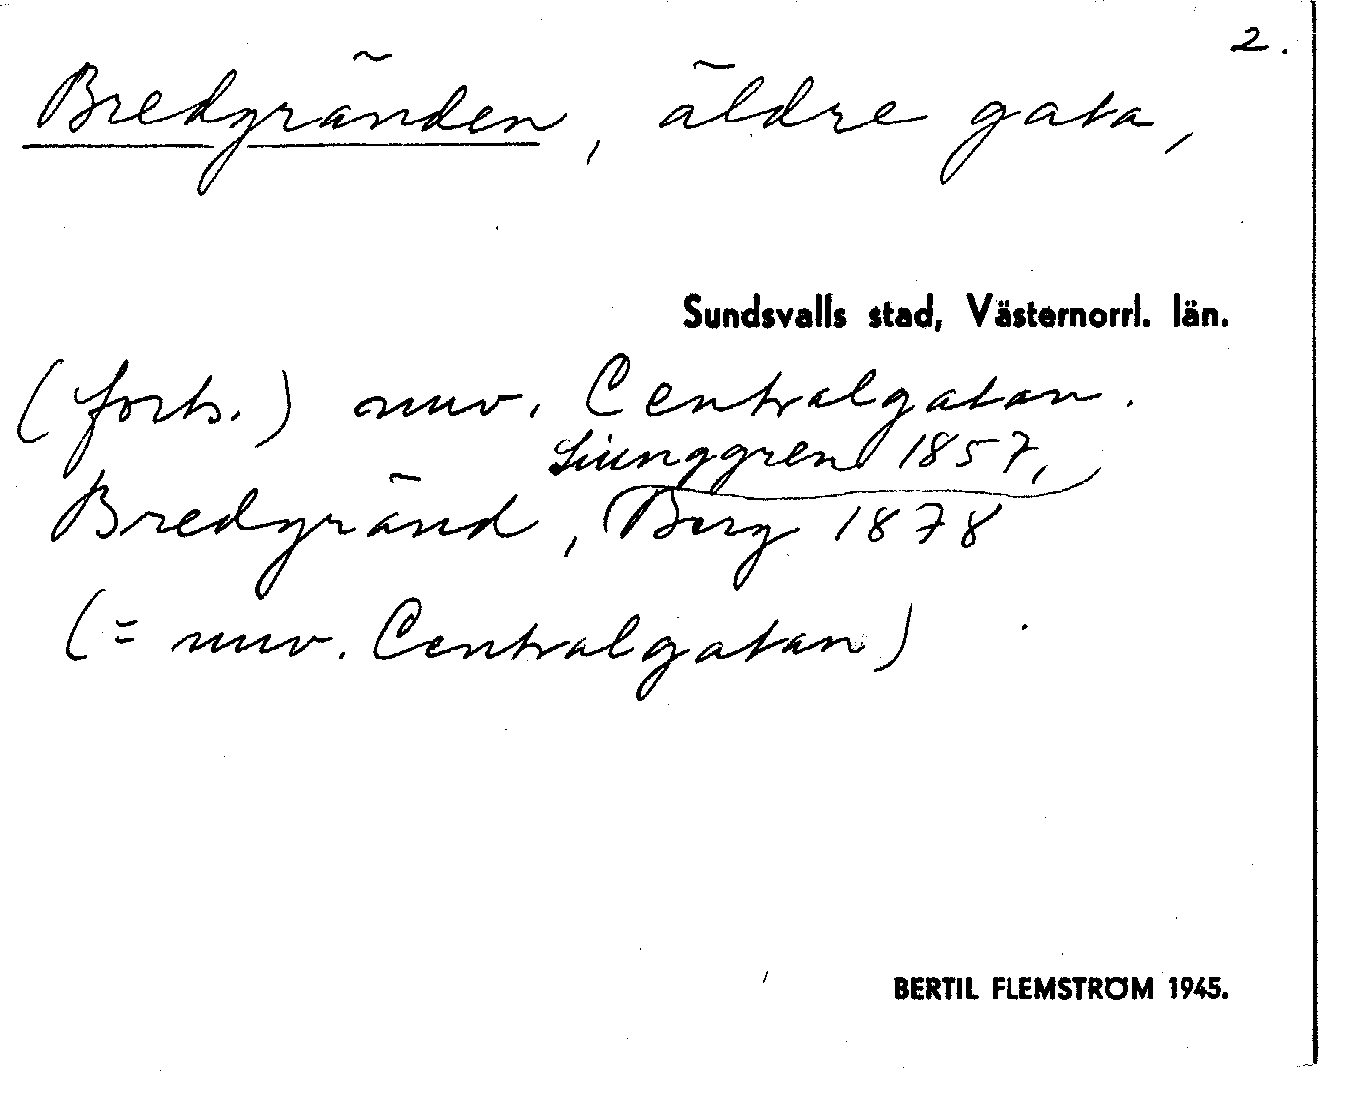 2.
Bredgränden, äldre gata,
Sundsvalls stad, Västernorrl. län.
(forts.) nuv. Centralgatan.
Ljunggren 1857,
Bredgränd, Berg 1878
(= nuv. Centralgatan)
BERTIL FLEMSTRÖM 1945.